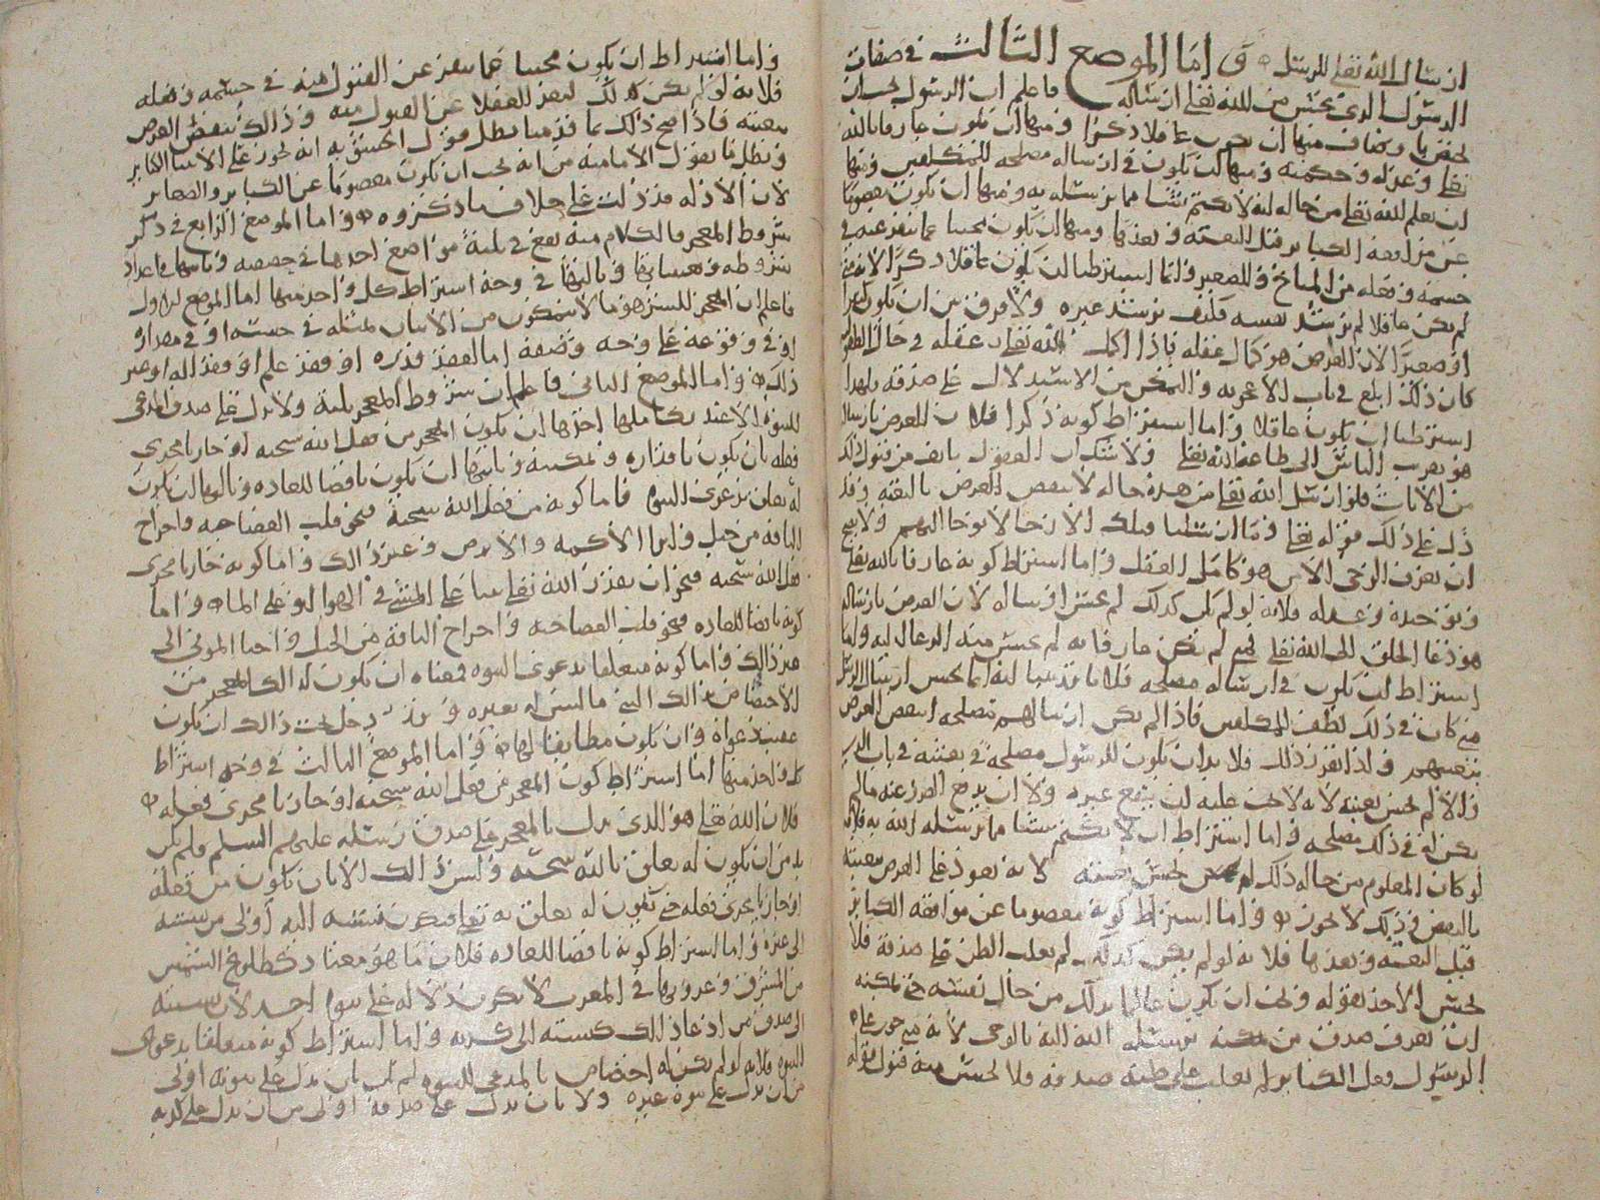 ارسال الله تعالى للرسل ۞ واما الموضع الثالث في صفات
الرسول الذي يحسن من الله تعالى ارساله فاعلم ان الرسول يجب ان
يختص باوصاف منها ان يكون عاقلا ذكرا ومنها ان يكون عارفا بالله
تعالى وعدله وحكمته ومنها ان يكون في ارساله مصلحه للمكلفين ومنها
ان يعلم الله تعالى من حاله انه لا يكتم شيئا مما يرسله به ومنها ان يكون معصوما
عن مواقعه الكبائر قبل البعثه وبعدها ومنها ان يكون مجنبا عما ينفر عنه في
جسمه وفعله من المباح والصغير وانما اشترطنا ان يكون عاقلا ذكرا لانه متى
لم يكن عاقلا لم يرشد نفسه فكيف يرشد غيره ولا فرق بين ان يكون كبيرا
او صغيرا لان الغرض هو كمال عقله فاذا اكمل الله تعالى عقله في حال الطفوليه
كان ذلك ابلغ في باب الاعجوبه والتمكن من الاستدلال على صدقه فلهذا
اشترطنا ان يكون عاقلا واما اشتراط كونه ذكرا فلان الغرض بارساله
هو تقريب الناس الى طاعة الله تعالى ولا شك ان العقول تانف من قبول ذلك
من الاناث فلو ارسل الله تعالى من هذه حاله لانتقض الغرض بالبعثه وقد
دل على ذلك قوله تعالى وما ارسلنا قبلك الا رجالا نوحي اليهم ولا يصح
ان يعرف الوحي الا من هو كامل العقل واما اشتراط كونه عارفا بالله تعالى
وتوحيده وعدله فلانه لو لم يكن كذلك لم يحسن ارساله لان الغرض بارساله
هو دعا الخلق الى الله تعالى فمتى لم يكن عارفا به لم يحسن منه الدعا اليه واما
اشتراط ان يكون في ارساله مصلحه فلما قدمنا انه انما يحسن ارسال الرسل
متى كان في ذلك لطف للمكلفين فاذا لم يكن ارسالهم مصلحه انتقض الغرض
ببعثتهم واذا تقرر ذلك فلا بد ان يكون للرسول مصلحة في بعثته في باب الدين
والا لم يحسن بعثه لانه لا يجب عليه ان ينفع غيره ولا ان يدفع الضرر عنه ما لم
يكن له في ذلك مصلحه واما اشتراط ان لا يكتم شيئا مما يرسله الله به فلانه
لو كان المعلوم من حاله ذلك لم يحسن بعثته لانه يعود على الغرض ببعثته
بالنقض وذلك لا يجوز واما اشتراط كونه معصوما عن مواقعه الكبائر
قبل البعثه وبعدها فلانه لو لم يكن كذلك لم يغلب الظن على صدقه فلا
يحسن الاخذ بقوله ويجب ان يكون عالما بذلك من حال نفسه حتى يمكنه
ان يعرف صدق من يرسله الله اليه بالوحي لانه متى جوز على
الرسول فعل الكبائر لم يغلب على ظنه صدقه فلا يحسن منه قبول قوله
واما اشتراط ان يكون مجنبا عما ينفر عن القبول منه في جسمه وفعله
فلانه لو لم يكن كذلك لنفر العقلا عن القبول منه وذلك ينقض الغرض
ببعثته فاذا صح ذلك بما قدمنا بطل قول الحشويه انه يجوز على الانبيا الكبائر
وبطل ما يقول الاماميه من انه يجب ان يكون معصوما عن الكبائر والصغائر
لان الادله قد دلت على خلاف ما ذكروه ۞ واما الموضع الرابع في ذكر
شروط المعجز فالكلام منه يقع في ثلثة مواضع احدها في حقيقته وثانيها في اعداد
شروطه وثالثها في وجه اشتراط كل واحد منها اما الموضع الاول
فاعلم ان المعجز هو ما لا يتمكن من الاتيان بمثله في جنسه او في مقداره
او في وقوعه على وجه وصفه اما لفقد قدره او فقد علم او فقد اله او غير
ذلك ۞ واما الموضع الثاني فاعلم ان شروط المعجز ثلثة ولا يدل على صدق المدعي
للنبوة الا عند تكاملها احدها ان يكون المعجز من فعل الله سبحنه او جار مجرى
فعله بان يكون باقداره وتمكينه وثانيها ان يكون ناقضا للعاده وثالثها ان يكون
له تعلق بدعوى النبوة فاما كونه من فعل الله سبحنه فنحو قلب العصا حيه واخراج
الناقه من جبل وابرا الاكمه والابرص وغير ذلك واما كونه جاريا مجرى
فعل الله سبحنه فنحو ان يقدر الله تعالى نبيا على المشي في الهوا او على الماء واما
كونه ناقضا للعاده فنحو قلب العصا حيه واخراج الناقه من الجبل واحيا الموتى الى
غير ذلك واما كونه متعلقا بدعوى النبوه فمعناه ان يكون لذلك المعجز من
الاختصاص بذلك النبي ما ليس له بغيره ويدخل تحت ذلك ان يكون
عقيب دعواه وان يكون مطابقا لها ۞ واما الموضع الثالث في وجه اشتراط
كل واحد منها اما اشتراط كون المعجز من فعل الله سبحنه او جاريا مجرى فعله
فلان الله تعالى هو الذي يدل بالمعجز على صدق رسله عليهم السلم ولم يكن
بد من ان يكون له تعلق بالله سبحنه وليس ذلك الا بان يكون من فعله
او جاريا مجرى فعله حتى يكون له تعلق به تعالى فتكون نسبته اليه اولى من نسبته
الى غيره واما اشتراط كونه ناقضا للعاده فلان ما هو معتاد كطلوع الشمس
من المشرق وغروبها في المغرب لا يكون دلاله على نبوة احد لان نسبته
الى صدق من ادعا ذلك كنسبته الى كذبه واما اشتراط كونه متعلقا بدعوى
النبوه فلانه لو لم يكن له اختصاص بالمدعي للنبوه لم يكن بان يدل على نبوته اولى
من ان يدل على نبوة غيره ولا بان يدل على صدقه اولى من ان يدل على كذبه